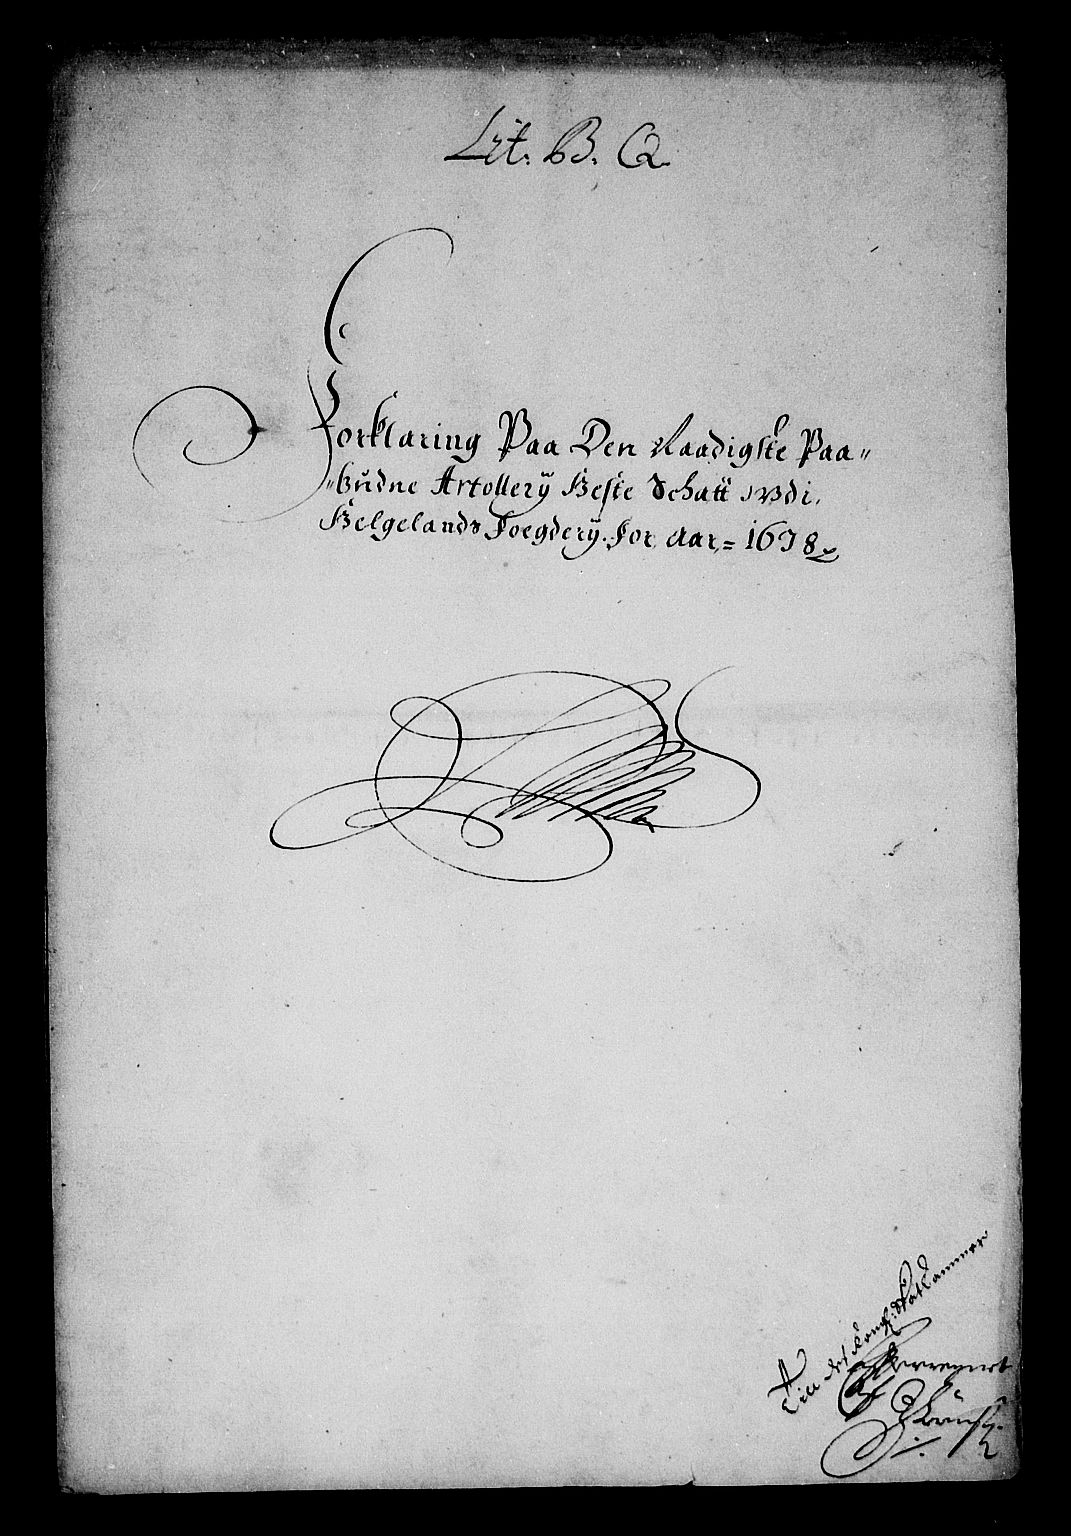 Lit. B. Q.
Forklaring Paa Den Naadigste Paa〃
〃budne Artollerÿ Heste Schatt Udi.
Helgelands Foegderÿ. For Aar,= 1678
Till det Kong: Skatkammer